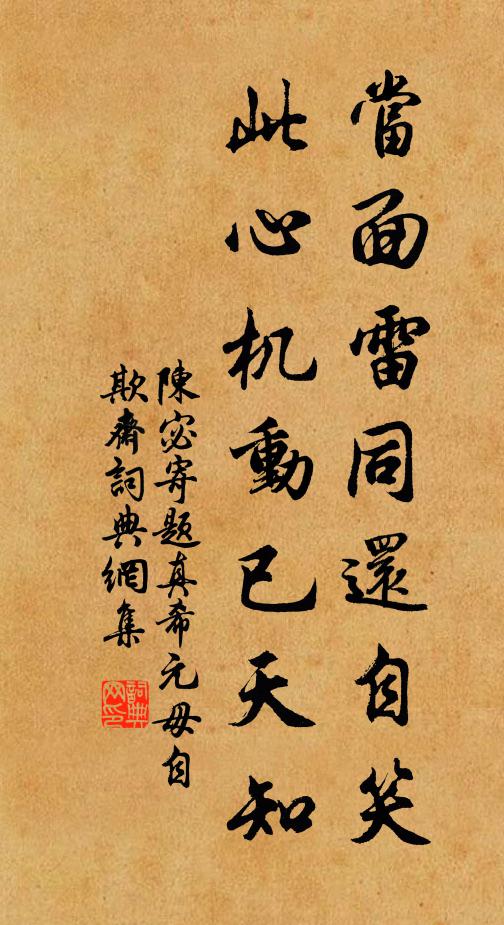 當面雷同還自笑
此心机動已天知
陳宓寄題真希元毋自
欺齋詞典網集
詞典网印